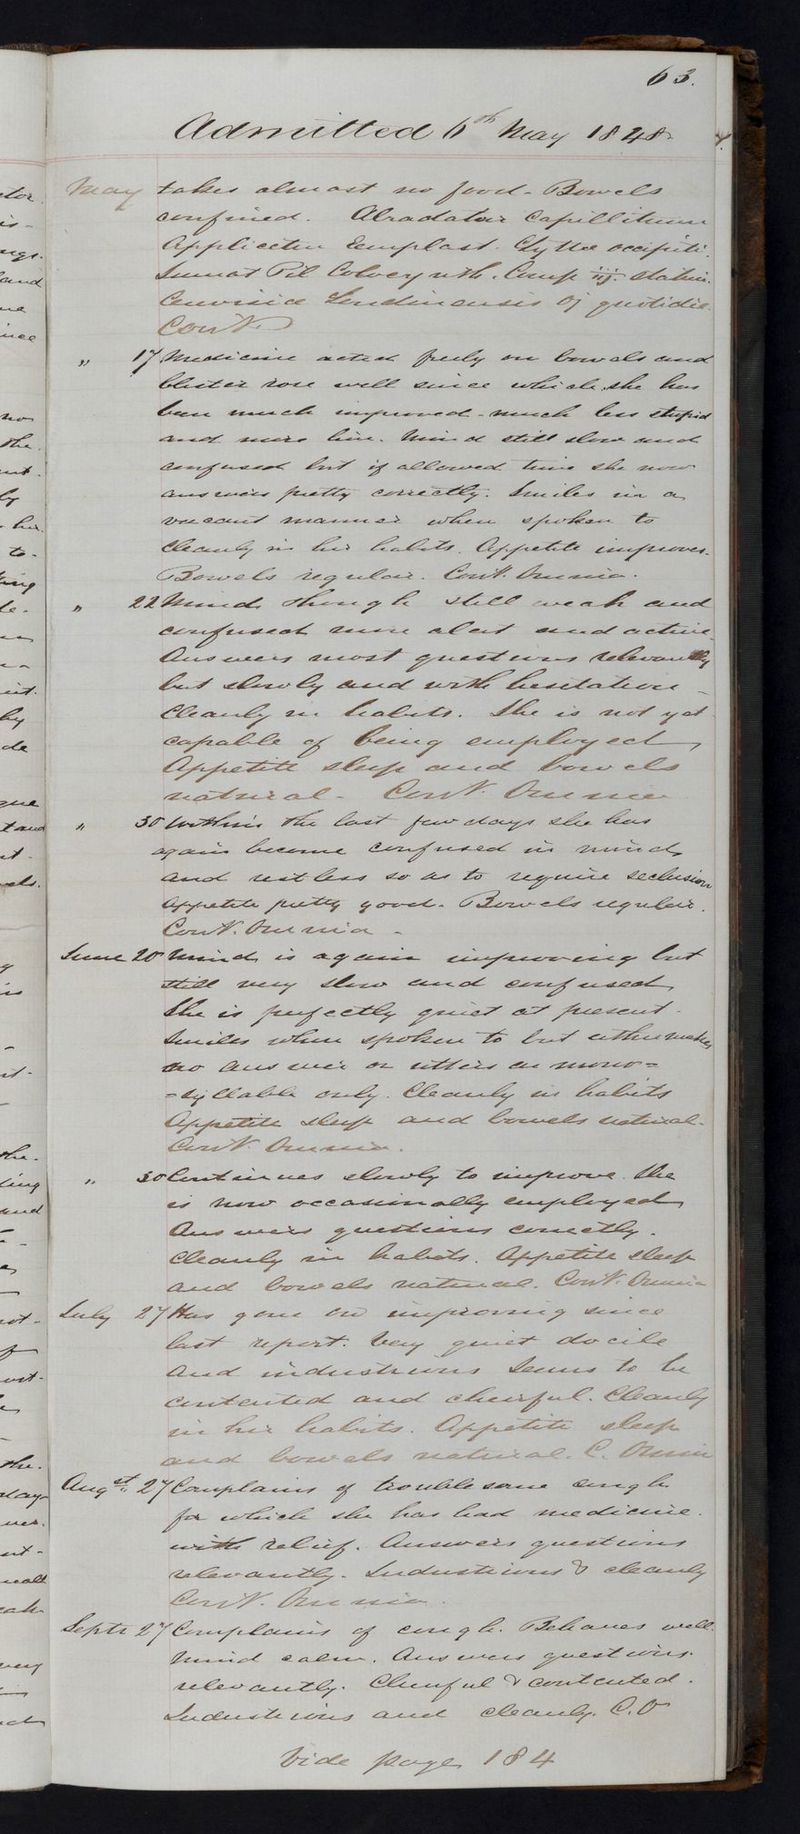 63.
Admitted 6th May 1848
May takes almost no food - Bowels
confined. Abradatur Capillitium
Applicetur Emplast. Lyttae occipiti.
Sumat Pil Colocynth. Comp iij statim.
Cerevisiae Londinensis Oj quotidie
Cont.
" 17 Medicine acted freely on bowels and
blister rose well since which she has
been much improved - much less stupid
and more live. Mind still slow and
confused but if allowed time she now
answers pretty correctly. Smiles in a
vacant manner when spoken to
Cleanly in her habits. Appetite improves.
Bowels regular. Cont. Omnia.
" 22 Mind though still weak and
confused more alert and active.
Answers most questions relevantly
but slowly and with hesitation -
Cleanly in habits. She is not yet
capable of being employed
Appetite sleep and bowels
natural - Cont. Omnia
" 30 Within the last few days she has
again become confused in mind
and restless so as to require seclusion
Appetite pretty good. Bowels regular.
Cont. Omnia -
June 20 Mind is again improving but
still very slow and confused
She is perfectly quiet at present.
Smiles when spoken to but either makes
no answer or utters a mono=
=syllable only. Cleanly in habits
Appetite sleep and bowels natural.
Cont. Omnia.
" 30 Continues slowly to improve. She
is now occasionally employed
Answers questions correctly.
Cleanly in habits. Appetite sleep
and bowels natural. Cont. Omnia
July 27 Has gone on improving since
last report. Very quiet docile
and industrious seems to be
contented and cheerful. Cleanly
in her habits. Appetite sleep
and bowels natural. C. Omnia
Augst. 27 Complains of troublesome cough
for which she has had medicine.
with relief. Answers questions
relevantly. Industrious & cleanly
Cont. Omnia.
Septr 27 Complains of cough. Behaves well.
Mind calm. Answers questions.
relevantly. Cheerful & contented.
Industrious and cleanly. C. O
Vide page 184